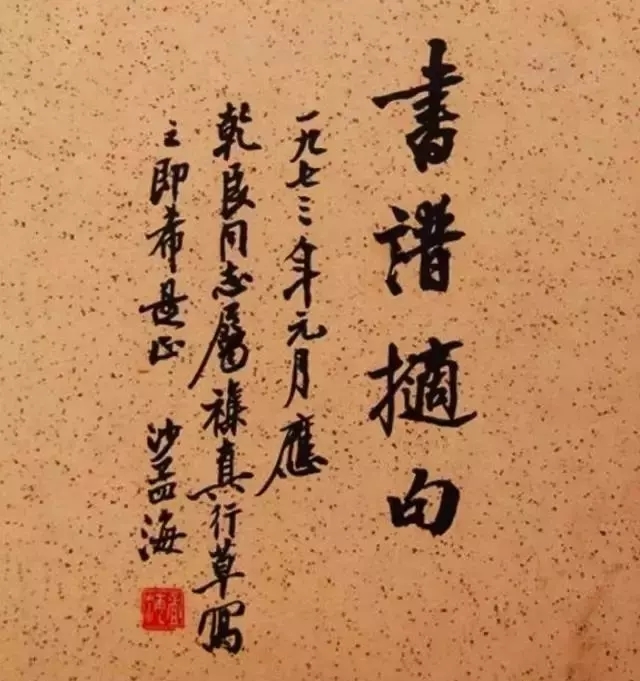 書譜摘句
一九七三年元月應
乾良同志屬襍真行草寫
之即希是正 沙孟海